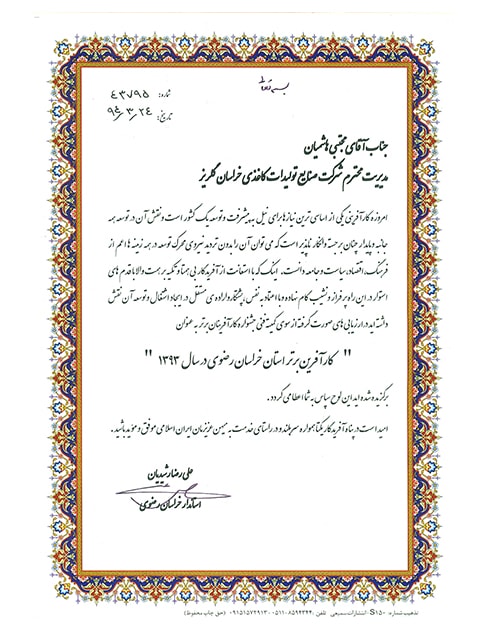 بسمه تعالی
شماره: ۴۳۷۹۵
تاریخ: ۹۴/۳/۲۴
جناب آقای مجتبی هاشمیان
مدیریت محترم شرکت صنایع تولیدات کاغذی خراسان گلریز
امروزه کارآفرینی یکی از اساسی ترین نیازها برای نیل به پیشرفت و توسعه یک کشور است و نقش آن در توسعه همه
جانبه و پایدار چنان برجسته و انکار ناپذیر است که می توان آن را بدون تردید نیروی محرک توسعه در همه زمینه ها اعم از
فرهنگ، اقتصاد، سیاست و جامعه دانست. اینک که با استعانت از آفریدگار بی همتا و تکیه بر همت والا با قدم های
استوار در این راه پر فراز و نشیب گام نهاده و با اعتماد به نفس، پشتکار و اراده ی مستقل در ایجاد اشتغال و توسعه آن نقش
داشته اید در ارزیابی های صورت گرفته از سوی کمیته فنی جشنواره کارآفرینان برتر به عنوان
" کارآفرین برتر استان خراسان رضوی در سال ۱۳۹۳ "
برگزیده شده اید این لوح سپاس به شما اعطا می گردد.
امید است در پناه آفریدگار یکتا همواره سربلند و در راستای خدمت به میهن عزیزمان ایران اسلامی موفق و موید باشید.
علی رضا رشیدیان
استاندار خراسان رضوی
تذهیب شماره S۱۵۰-انتشارات سمیعی تلفن: ۰۵۱۱-۸۵۹۴۳۴۴ - ۰۹۱۵۱۵۷۲۹۱۳ (حق چاپ محفوظ)